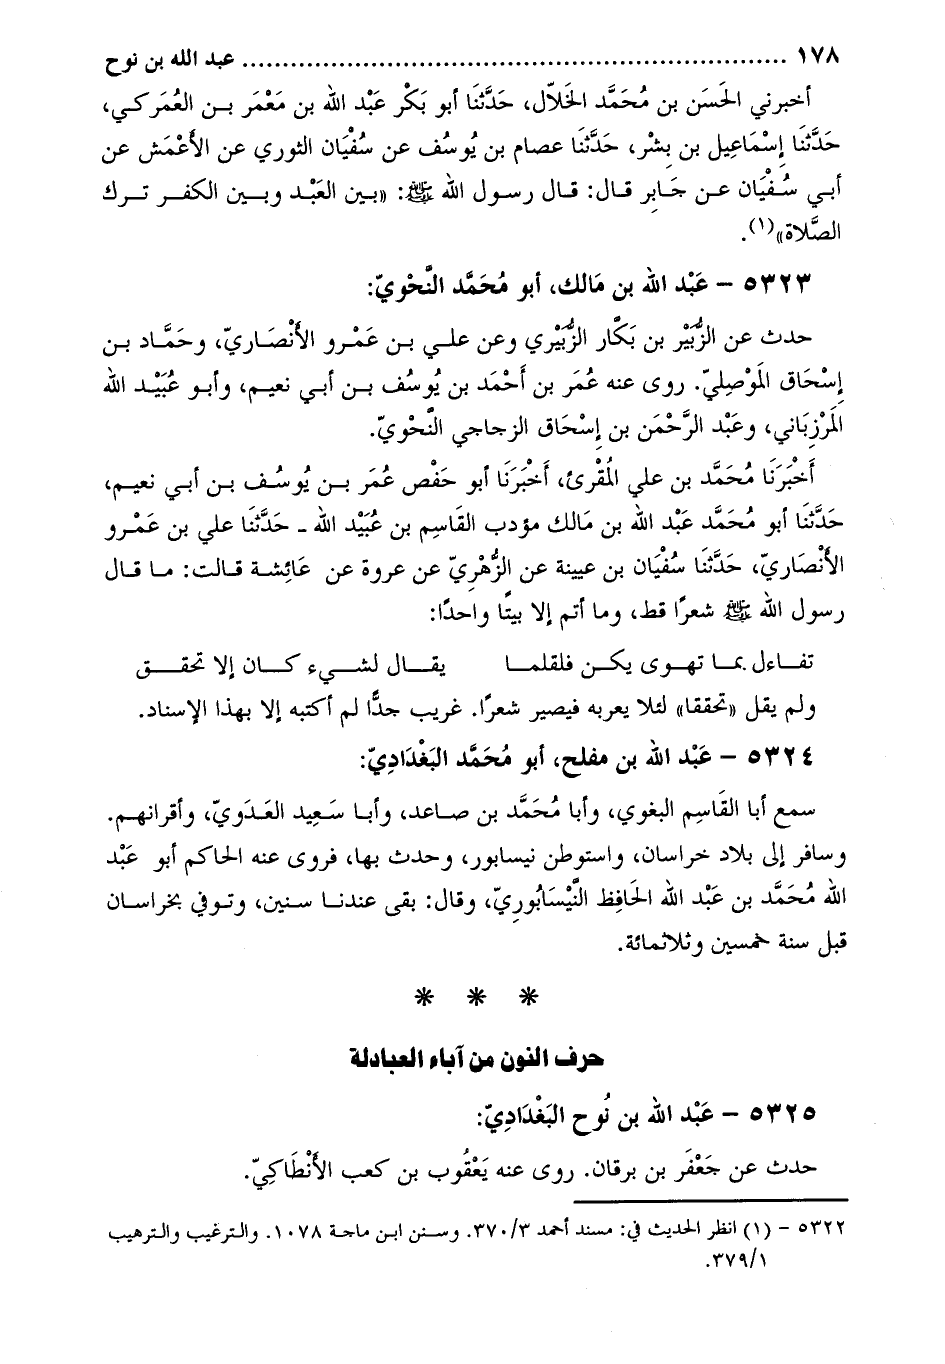 ١٧٨ ........................................................................ عبد الله بن نوح
أخبرني الحَسَن بن مُحَمَّد الخَلاّل، حَدَّثَنَا أبو بَكْر عَبْد الله بن مَعْمَر بن العُمَركي،
حَدَّثَنَا إِسْمَاعِيل بن بِشْر، حَدَّثَنَا عصام بن يُوسُف عن سُفْيَان الثوري عن الأَعْمَش عن
أبي سُفْيَان عن جَابِر قال: قال رسول الله ﷺ: «بين العَبْد وبين الكفر ترك
الصَّلاة»(١).
٥٣٢٣ - عَبْد الله بن مَالك، أبو مُحَمَّد النَّحْويّ:
حدث عن الزُّبَيْر بن بَكَّار الزُّبَيْري وعن علي بن عَمْرو الأَنْصَاريّ، وحَمَّاد بن
إِسْحَاق المَوْصِليّ. روى عنه عُمَر بن أَحْمَد بن يُوسُف بن أبي نعيم، وأبو عُبَيْد الله
المَرْزبَاني، وعَبْد الرَّحْمَن بن إِسْحَاق الزجاجي النَّحْويّ.
أَخْبَرَنَا مُحَمَّد بن علي المُقْرئ، أَخْبَرَنَا أبو حَفْص عُمَر بن يُوسُف بن أبي نعيم،
حَدَّثَنَا أبو مُحَمَّد عَبْد الله بن مَالك مؤدب القَاسِم بن عُبَيْد الله ـ حَدَّثَنَا علي بن عَمْرو
الأَنْصَاريّ، حَدَّثَنَا سُفْيَان بن عيينة عن الزُّهْرِيّ عن عروة عن عَائِشة قالت: ما قال
رسول الله ﷺ شعرًا قط، وما أتم إلا بيتًا واحدًا:
تفاءل بما تهوى يكن فلقلما يقال لشيء كان إلا تحقق
ولم يقل «تحققا» لئلا يعربه فيصير شعرًا. غريب جدًّا لم أكتبه إلا بهذا الإسناد.
٥٣٢٤ - عَبْد الله بن مفلح، أبو مُحَمَّد البَغْدَادِيّ:
سمع أبا القَاسِم البغوي، وأبا مُحَمَّد بن صاعد، وأبا سَعِيد العَدَويّ، وأقرانهم.
وسافر إلى بلاد خراسان، واستوطن نيسابور، وحدث بها، فروى عنه الحاكم أبو عَبْد
الله مُحَمَّد بن عَبْد الله الحَافِظ النَّيْسَابُوريّ، وقال: بقى عندنا سنين، وتوفي بخراسان
قبل سنة خمسين وثلاثمائة.
* * *
حرف النون من آباء العبادلة
٥٣٢٥ - عَبْد الله بن نُوح البَغْدَادِيّ:
حدث عن جَعْفَر بن برقان. روى عنه يَعْقُوب بن كعب الأَنْطَاكِيّ.
٥٣٢٢ - (١) انظر الحديث في: مسند أحمد ٣/٣٧٠. وسنن ابن ماجة ١٠٧٨. والترغيب والترهيب
١/٣٧٩.